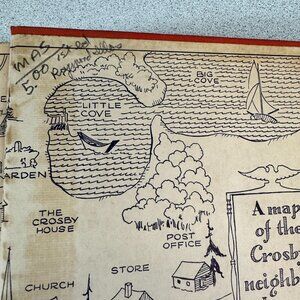 MAS
5.00
BIG
COVE
LITTLE
COVE
ARDEN
THE
CROSBY
HOUSE
POST
OFFICE
STORE
CHURCH
A map
of the
Crosby
neighb